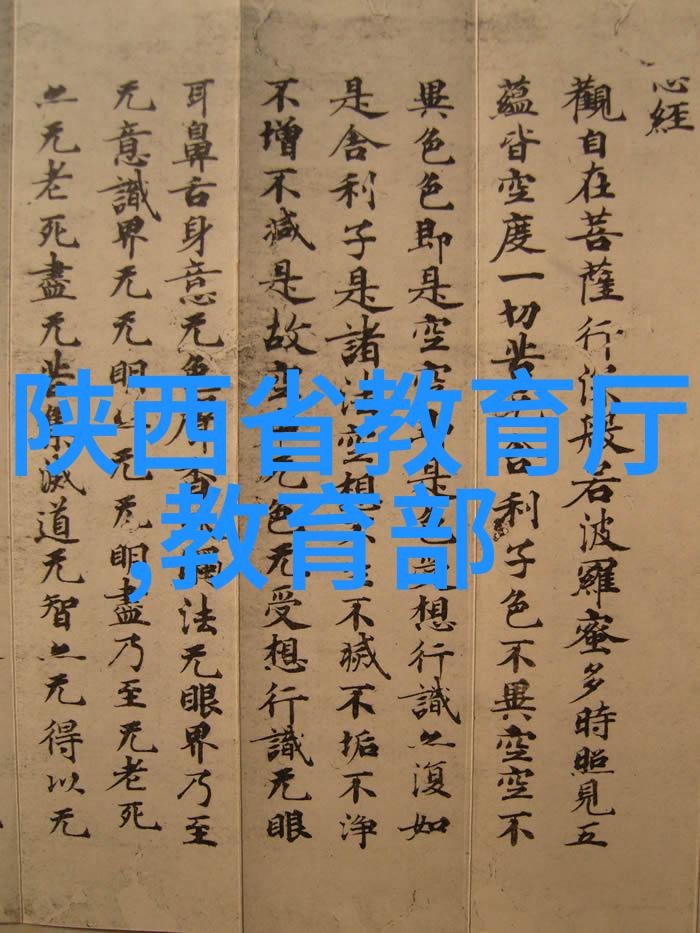 心経
觀自在菩薩行深般若波羅蜜多時照見五
蘊皆空度一切苦舍利子色不異空空不
異色色即是空空即是色想行識亦復如
是舍利子是諸法空想不滅不垢不淨
不增不減是故空无色无受想行識无眼
耳鼻舌身意无色香法无眼界乃至
无意識界无无明亦无无明盡乃至无老死
亦无老死盡无苦集滅道无智亦无得以无
陕西省教育厅
,教育部